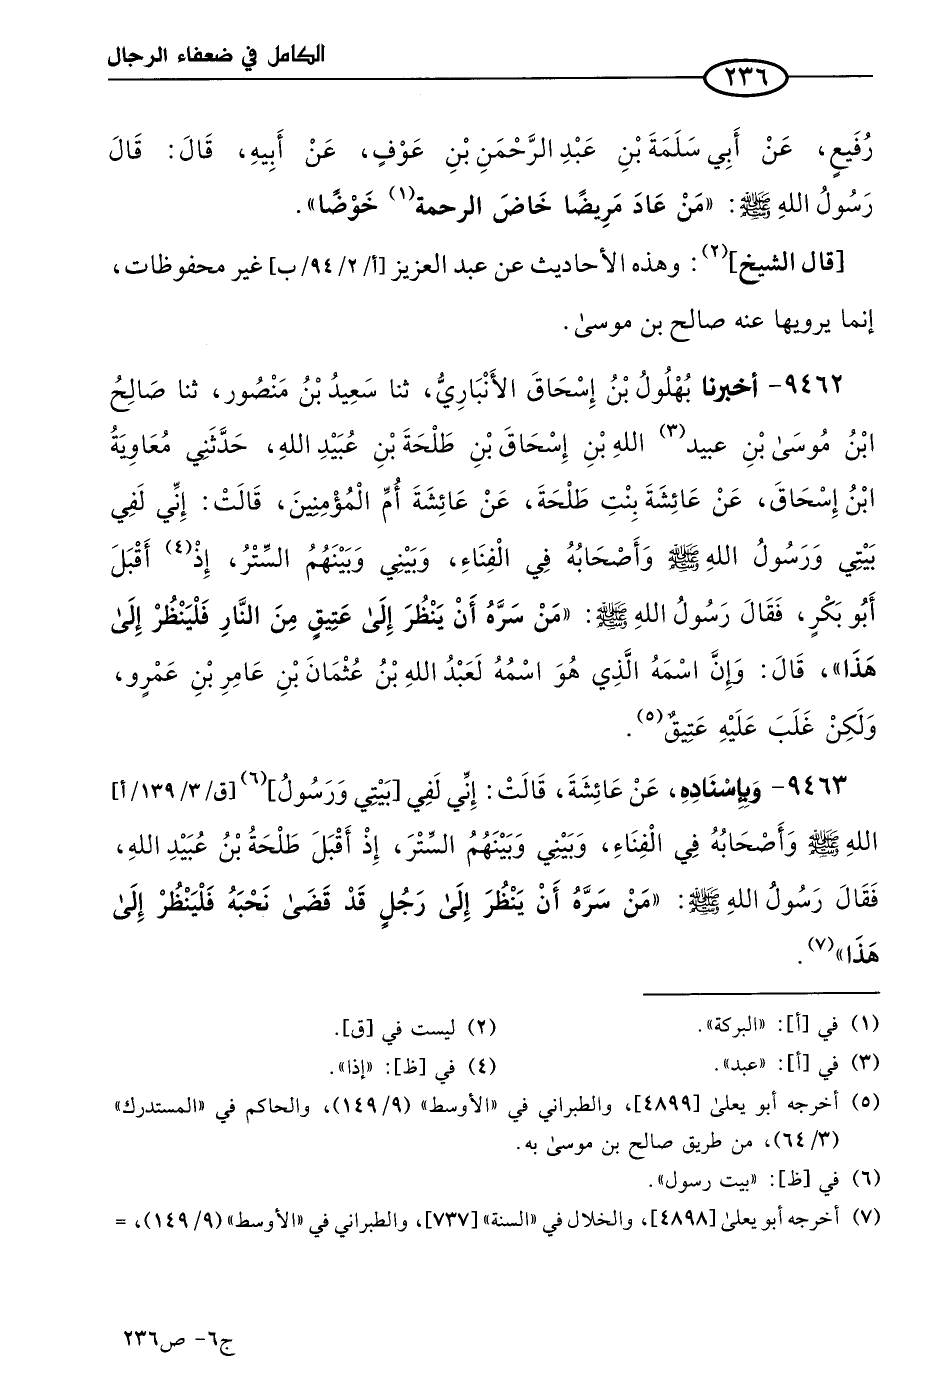 الكامل في ضعفاء الرجال
٢٣٦
رُفَيعٍ، عَنْ أَبِي سَلَمَةَ بْنِ عَبْدِ الرَّحْمَنِ بْنِ عَوْفٍ، عَنْ أَبِيهِ، قَالَ: قَالَ
رَسُولُ اللهِ ﷺ: «مَنْ عَادَ مَرِيضًا خَاضَ الرحمة(١) خَوْضًا».
[قال الشيخ](٢): وهذه الأحاديث عن عبد العزيز [أ/ ٢/ ٩٤/ ب] غير محفوظات،
إنما يرويها عنه صالح بن موسىٰ.
٩٤٦٢- أخبرنا بُهْلُولُ بْنُ إِسْحَاقَ الأَنْبَارِيُّ، ثنا سَعِيدُ بْنُ مَنْصُور، ثنا صَالِحُ
ابْنُ مُوسَىٰ بْنِ عبيد(٣) اللهِ بْنِ إِسْحَاقَ بْنِ طَلْحَةَ بْنِ عُبَيْدِ اللهِ، حَدَّثَنِي مُعَاوِيَةُ
ابْنُ إِسْحَاقَ، عَنْ عَائِشَةَ بِنْتِ طَلْحَةَ، عَنْ عَائِشَةَ أُمِّ الْمُؤْمِنِينَ، قَالَتْ: إِنِّي لَفِي
بَيْتِي وَرَسُولُ اللهِ ﷺ وَأَصْحَابُهُ فِي الْفِنَاءِ، وَبَيْنِي وَبَيْنَهُمُ السِّتْرُ، إِذْ(٤) أَقْبَلَ
أَبُو بَكْرٍ، فَقَالَ رَسُولُ اللهِ ﷺ: «مَنْ سَرَّهُ أَنْ يَنْظُرَ إِلَىٰ عَتِيقٍ مِنَ النَّارِ فَلْيَنْظُرْ إِلَىٰ
هَذَا»، قَالَ: وَإِنَّ اسْمَهُ الَّذِي هُوَ اسْمُهُ لَعَبْدُ اللهِ بْنُ عُثْمَانَ بْنِ عَامِرِ بْنِ عَمْرٍو،
وَلَكِنْ غَلَبَ عَلَيْهِ عَتِيقٌ(٥).
٩٤٦٣- وَبِإِسْنَادِهِ، عَنْ عَائِشَةَ، قَالَتْ: إِنِّي لَفِي [بَيْتِي وَرَسُولُ](٦) [ق/ ٣/ ١٣٩/ أ]
اللهِ ﷺ وَأَصْحَابُهُ فِي الْفِنَاءِ، وَبَيْنِي وَبَيْنَهُمُ السِّتْرَ، إِذْ أَقْبَلَ طَلْحَةُ بْنُ عُبَيْدِ اللهِ،
فَقَالَ رَسُولُ اللهِ ﷺ: «مَنْ سَرَّهُ أَنْ يَنْظُرَ إِلَىٰ رَجُلٍ قَدْ قَضَىٰ نَحْبَهُ فَلْيَنْظُرْ إِلَىٰ
هَذَا»(٧).
(١) في [أ]: «البركة». (٢) ليست في [ق].
(٣) في [أ]: «عبد». (٤) في [ظ]: «إذا».
(٥) أخرجه أبو يعلىٰ [٤٨٩٩]، والطبراني في «الأوسط» (٩/ ١٤٩)، والحاكم في «المستدرك»
(٣/ ٦٤)، من طريق صالح بن موسىٰ به.
(٦) في [ظ]: «بيت رسول».
(٧) أخرجه أبو يعلىٰ [٤٨٩٨]، والخلال في «السنة» [٧٣٧]، والطبراني في «الأوسط» (٩/ ١٤٩)، =
ج٦- ص٢٣٦